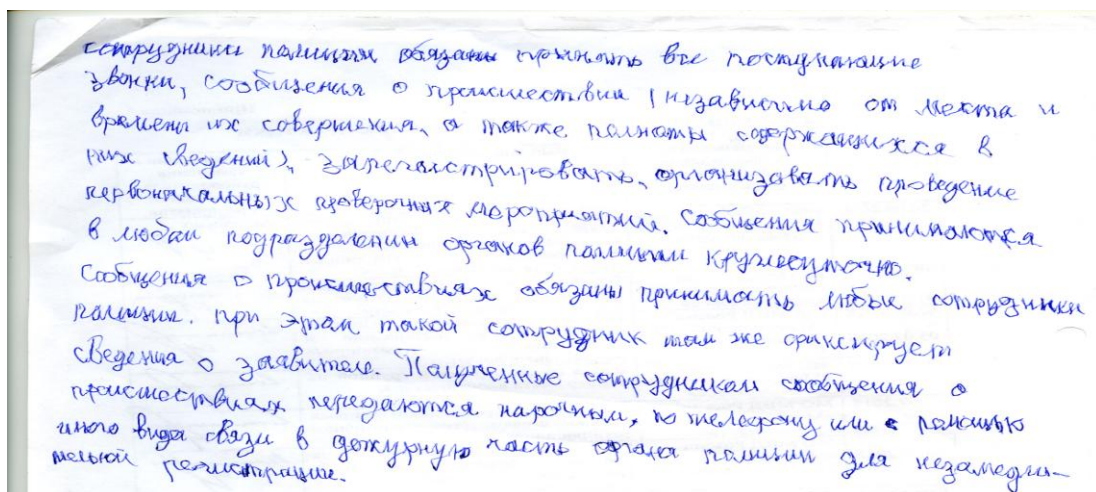 сотрудники полиции обязаны принять все поступающие
звонки, сообщения о происшествии (независимо от места и
времени их совершения, а также полноты содержащихся в
них сведений), зарегистрировать, организовать проведение
первоначальных проверочных мероприятий. Сообщения принимаются
в любом подразделении органов полиции круглосуточно.
Сообщения о происшествиях обязаны принимать любые сотрудники
полиции. При этом такой сотрудник там же фиксирует
сведения о заявителе. Полученные сотрудником сообщения о
происшествиях передаются нарочным, по телефону или с помощью
иного вида связи в дежурную часть органа полиции для незамедли-
тельной регистрации.